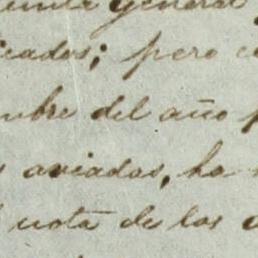 general
cados; pero
mbre del año
aviados, ha
nota de los